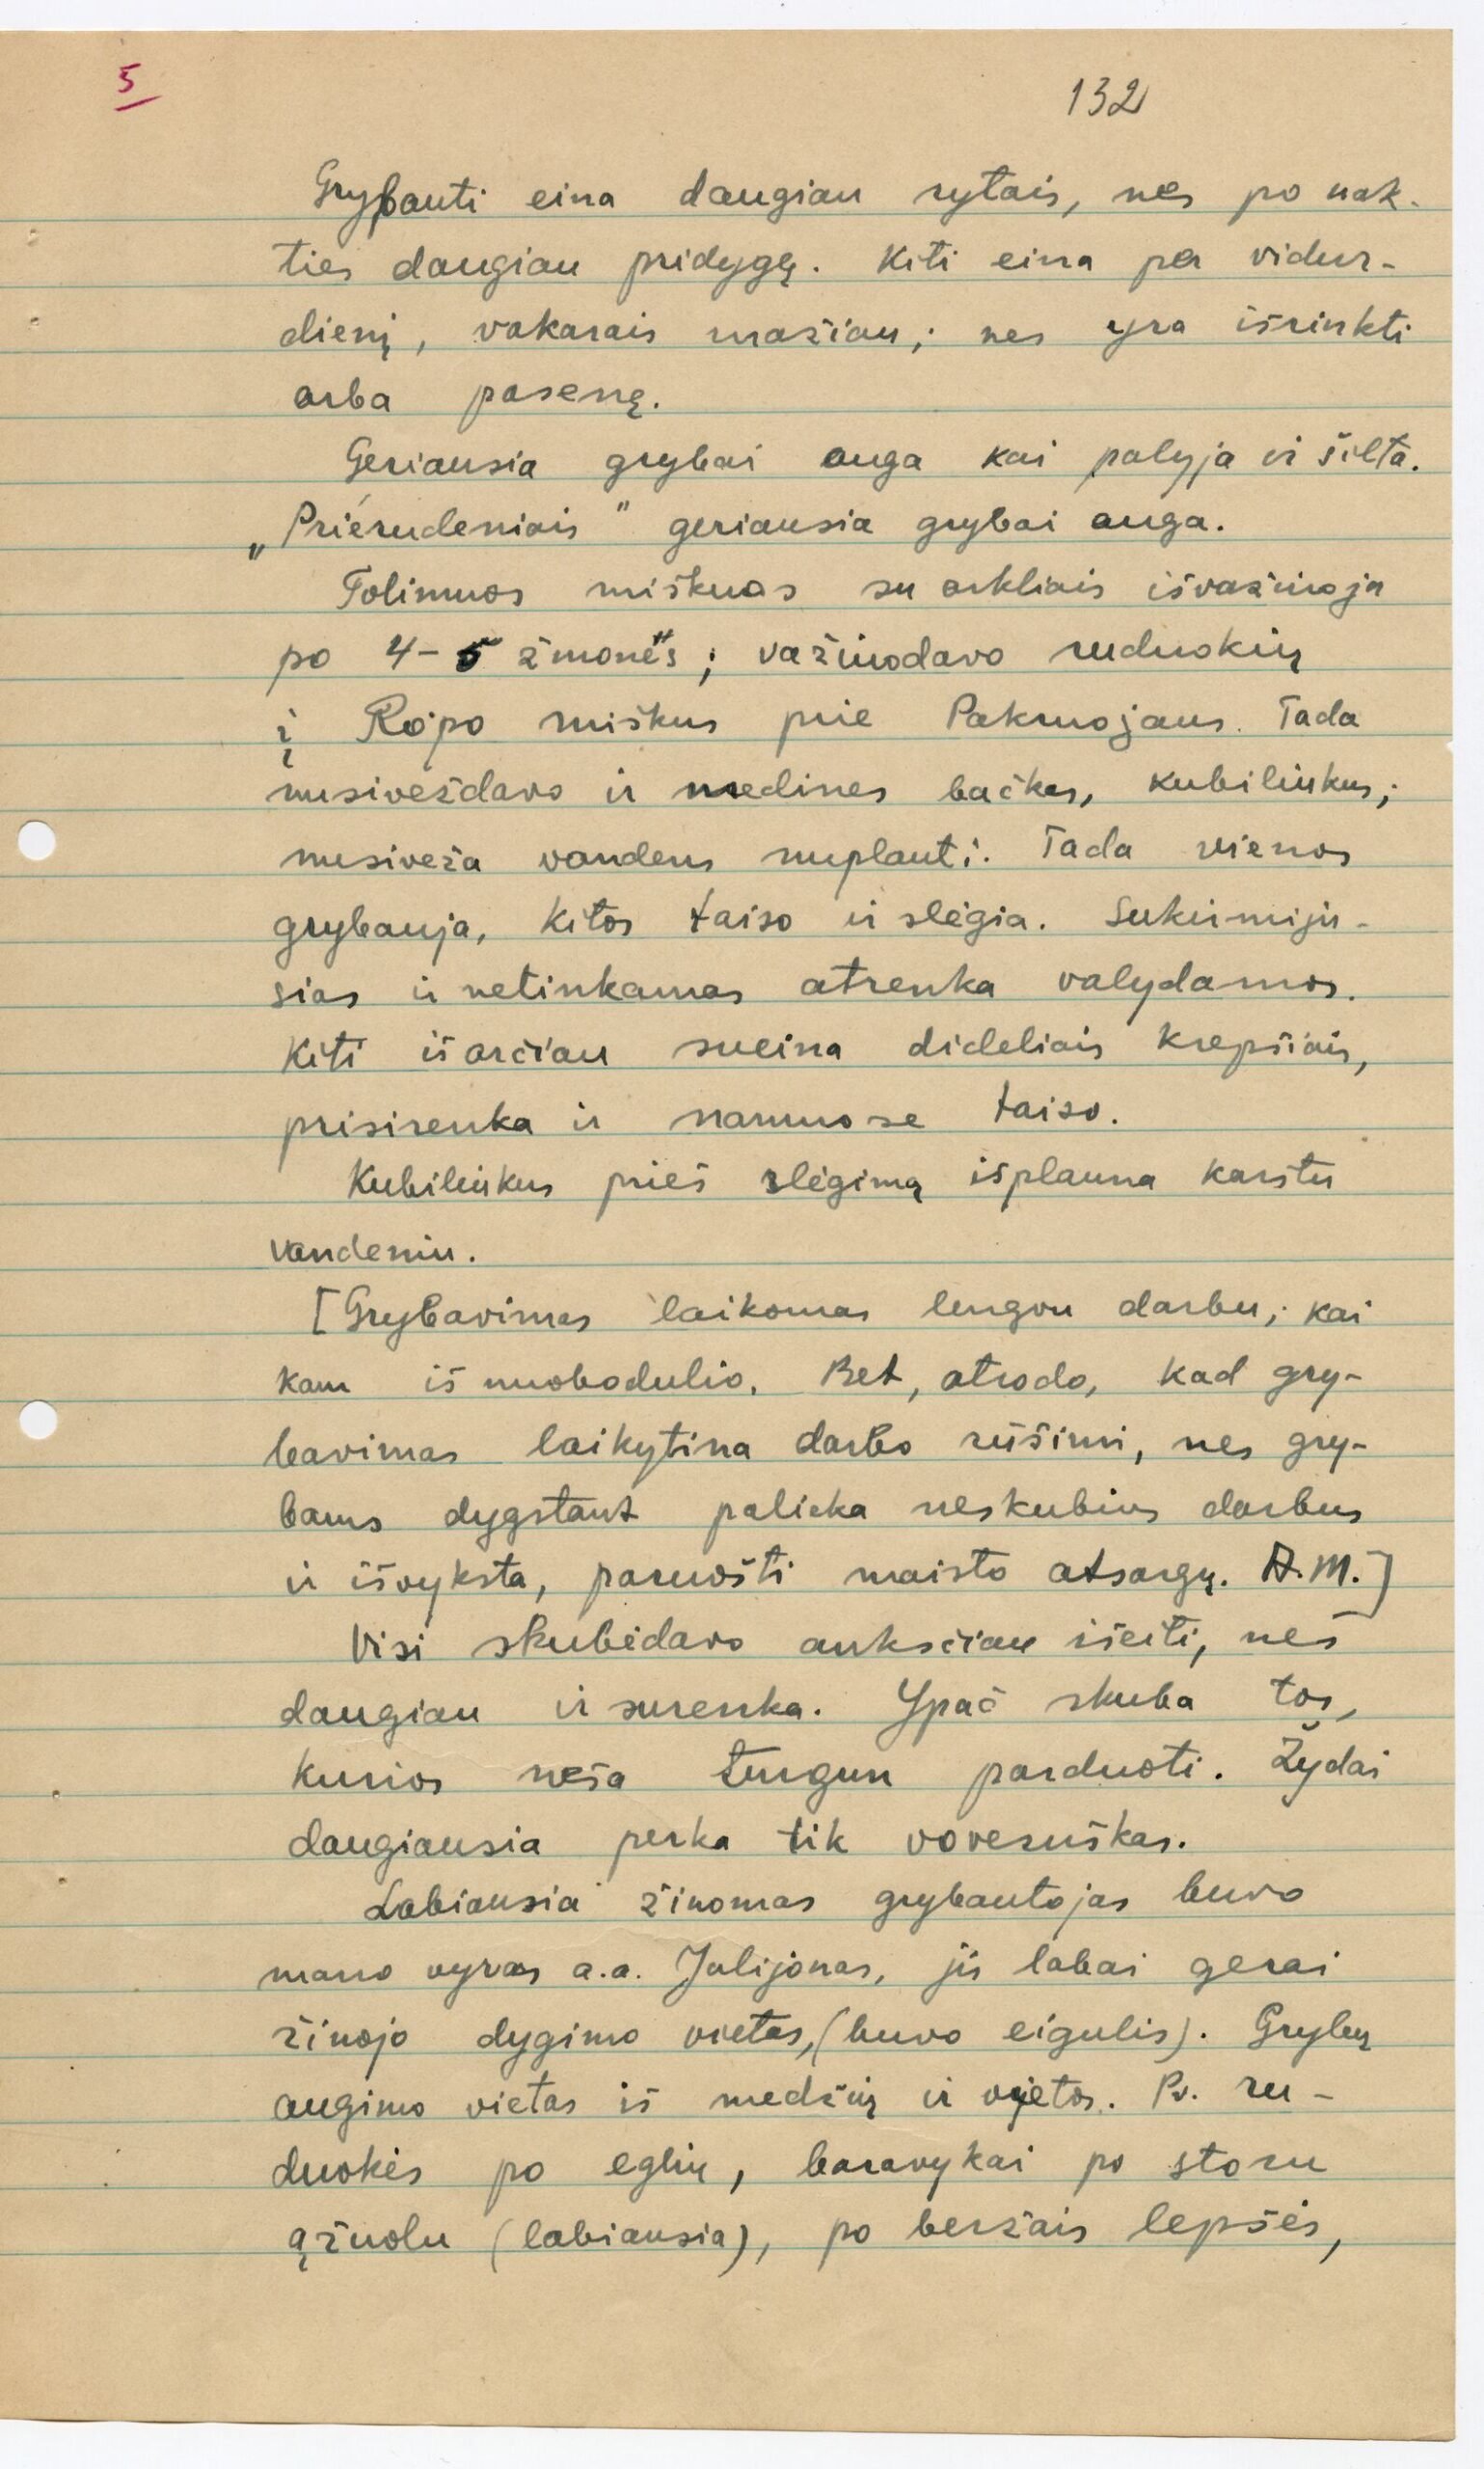 5
132
Grybauti eina daugian rytais, nes po nak-
ties daugiau pridygę. Kiti eina per vidur-
dienį, vakarais mažiau; nes yra išrinkti
arba pasenę.
Geriausia grybai auga kai palyja ir šilta.
„Priérudeniais" geriausia grybai auga.
Tolimuos miškuos su arkliais išvažiuoja
po 4-5 žmonės; važiuodavo ruduokių
į Rópo miškus prie Pakruojaus. Tada
nusiveždavo ir medines bačkas, kubiliukus;
nusiveža vandens nuplauti. Tada vienos
grybauja, kitos taiso ir slėgia. Sukirmiju-
sias ir netinkamas atrenka valydamos.
Kiti iš arčiau sueina dideliais krepšiais,
prisirenka ir namuose taiso.
Kubiliukus prieš slėgimą išplauna karštu
vandeniu.
[Grybavimas laikomas lengvu darbu; kai
kam iš nuobodulio. Bet, atrodo, kad gry-
bavimas laikytina darbo rūšimi, nes gry-
bams dygstant palieka neskubius darbus
ir išvyksta, paruošti maisto atsargų. A.M.]
Visi skubėdavo anksčiau išeiti, nes
daugiau ir surenka. Ypač skuba tos,
kurios neša turgun parduoti. Žydai
daugiausia perka tik voveruškas.
Labiausia žinomas grybautojas buvo
mano vyras a.a. Julijonas, jis labai gerai
žinojo dygimo vietas, (buvo eigulis). Grybų
augimo vietas iš medžių ir vietos. Pv. ru-
duokės po eglių, baravykai po storu
ąžuolu (labiausia), po beržais lepšės,